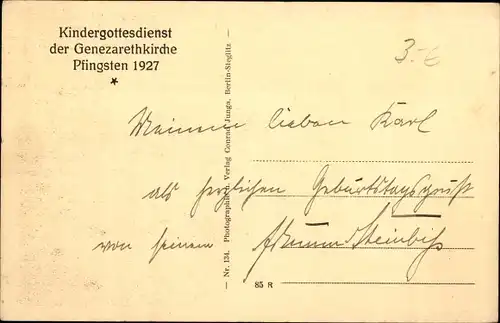 Kindergottesdienst
der Genezarethkirche
Pfingsten 1927
*
3.-€
Meinem lieben Karl
als herzlichen Geburtstagsgruß
von seinem Steinbiß
Nr. 134. Photographie u. Verlag Conrad Junga, Berlin-Steglitz
85 R